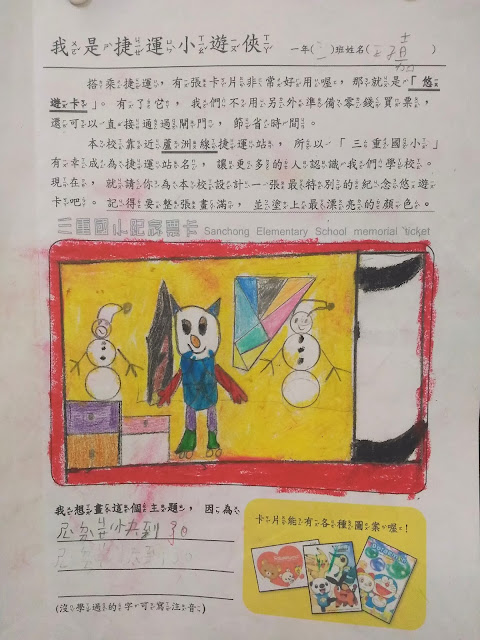 我是捷運小遊俠 一年( 二 )班姓名( )
搭乘捷運,有張卡片非常好用喔,那就是「悠
遊卡」。有了它,我們不用另外準備零錢買票,
還可以直接通過閘門,節省時間。
本校靠近蘆洲線捷運站,所以「三重國小」
有幸成為捷運站名,讓更多的人認識我們學校。
現在,就請你為本校設計一張最特別的紀念悠遊
卡吧。記得要整張畫滿,並塗上最漂亮的顏色。
三重國小紀念票卡 Sanchong Elementary School memorial ticket
我想畫這個主題,因為
卡片能有各種圖案喔!
ㄕㄥˋ ㄉㄢˋ ㄐㄧㄝˊ 快到了
(沒學過的字可寫注音)